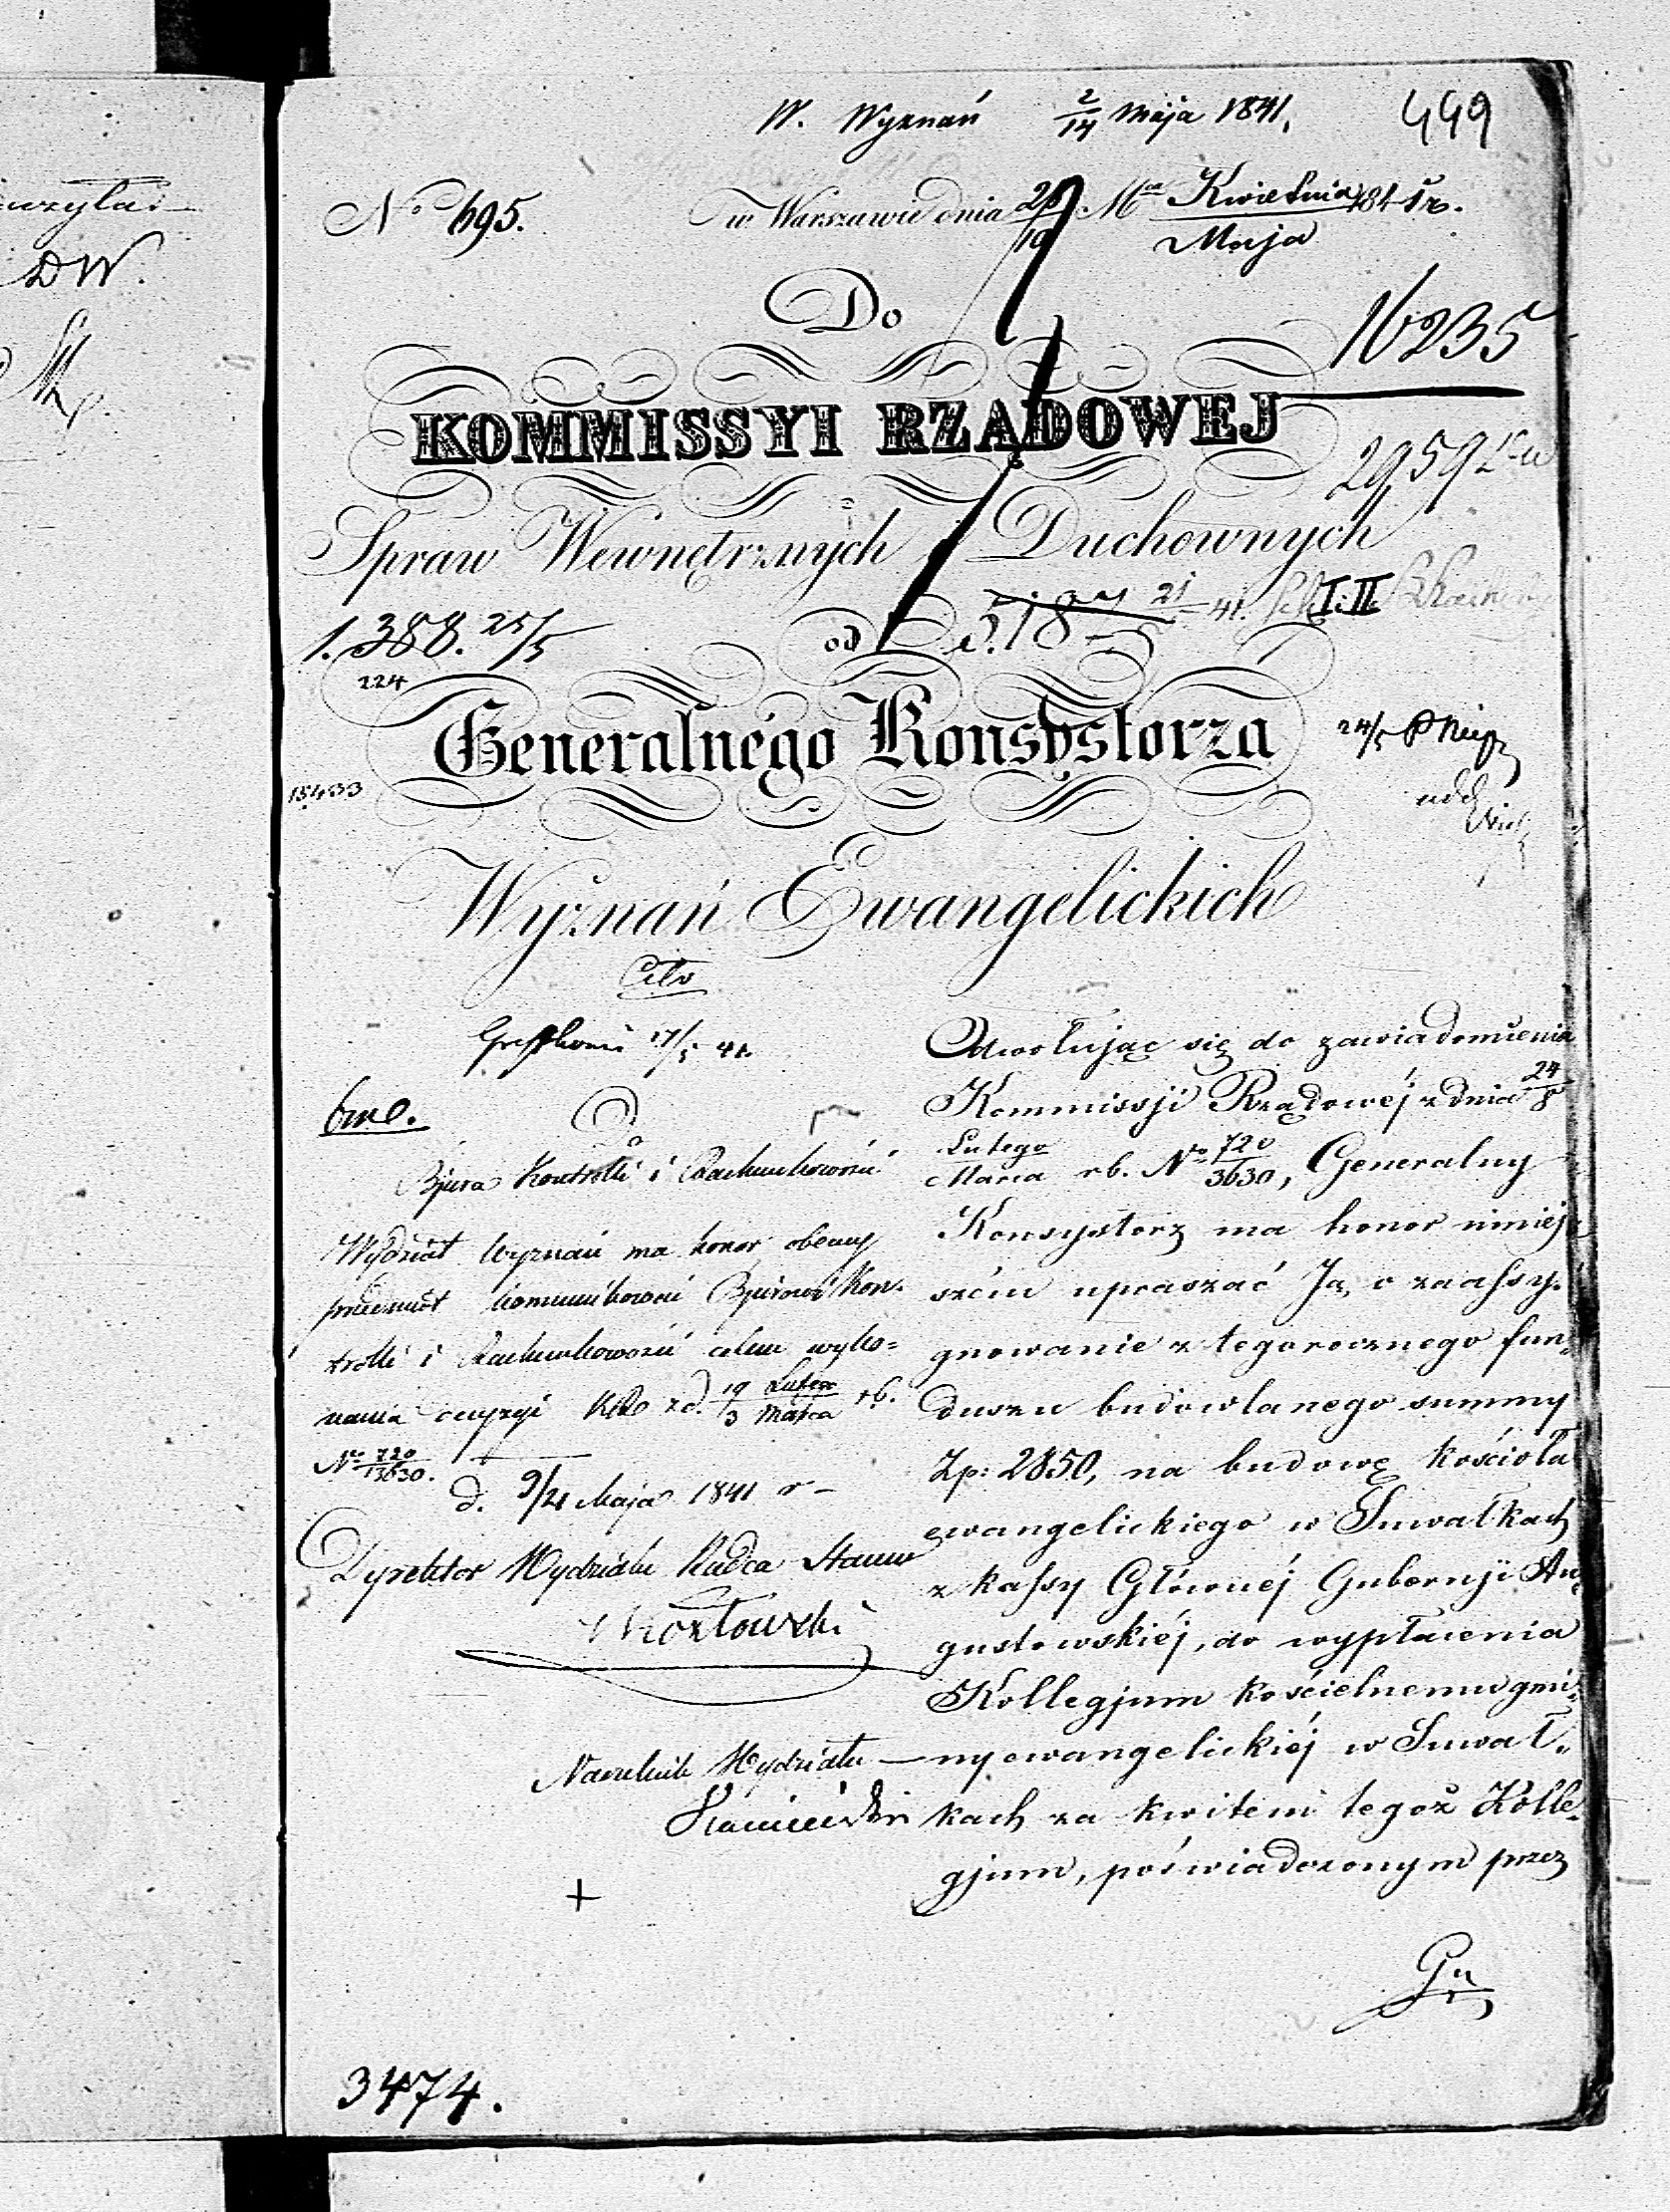 W. Wyznań 2/14 Maja 1841. 449
No 695. w Warszawie dnia 28/10 Mca Kwietnia/Maja 1841 r.
Do
16235
KOMMISSYI RZĄDOWEJ
2959
Spraw Wewnętrznych i Duchownych
1. 388. 25/5
od
224
Generalnego Konsystorza
15433
Wyznań Ewangelickich
Cito
17/5 41.
Do
Bjura Kontrolli i Rachunkowości
Wydział Wyznań ma honor obecny
przedmiot komunikować Bjurowi Kon-
trolli i Rachunkowości celem wyko=
nania decyzyi z d. 19/3 Lutego/Marca rb.
No 720/13630.
d. 9/21 Maja 1841 r –
Dyrektor Wydziału Radca Stanu
Kozłowski
Naczelnik Wydziału
Odwołując się do zawiadomienia
Kommissji Rządowéj z dnia 24/8
Lutego/Marca rb. No 720/3630, Generalny
Konsystorz ma honor niniej-
szém upraszać Ją, o zaassy-
gnowanie z tegorocznego fun-
duszu budowlanego summy
Zp: 2850, na budowę kościoła
ewangelickiego w Suwałkach
z kassy Głównéj Gubernji Au-
gustowskiéj, do wypłacenia
Kollegjum kościelnemu gmi-
ny ewangelickiéj w Suwał-
kach za kwitem tegoż Kolle-
gjum, poświadczonym przez
3474.